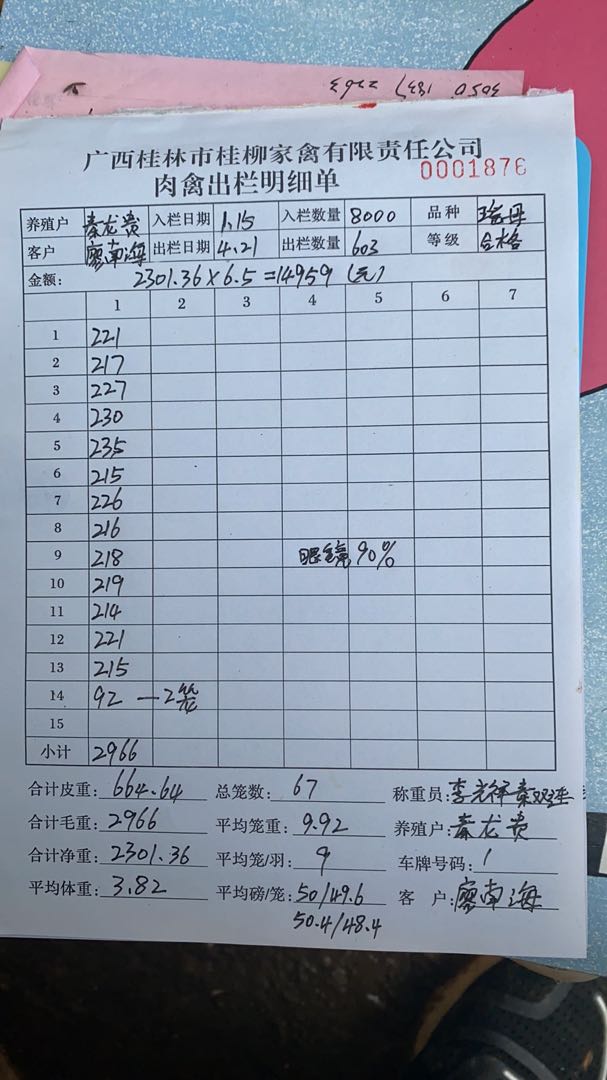 广西桂林市桂柳家禽有限责任公司
肉禽出栏明细单 0001876
养殖户 秦龙贵 入栏日期 1.15 入栏数量 8000 品种 瑶母
客户 廖南海 出栏日期 4.21 出栏数量 603 等级 合格
金额: 2301.36×6.5=14959 (元)
1 2 3 4 5 6 7
1 221
2 217
3 227
4 230
5 235
6 215
7 226
8 216
9 218 眼镜90%
10 219
11 214
12 221
13 215
14 92 — 2笼
15
小计 2966
合计皮重: 664.64 总笼数: 67 称重员:
合计毛重: 2966 平均笼重: 9.92 养殖户: 秦龙贵
合计净重: 2301.36 平均笼/羽: 9 车牌号码: /
平均体重: 3.82 平均磅/笼: 50/49.6 客 户: 廖南海
50.4/48.4